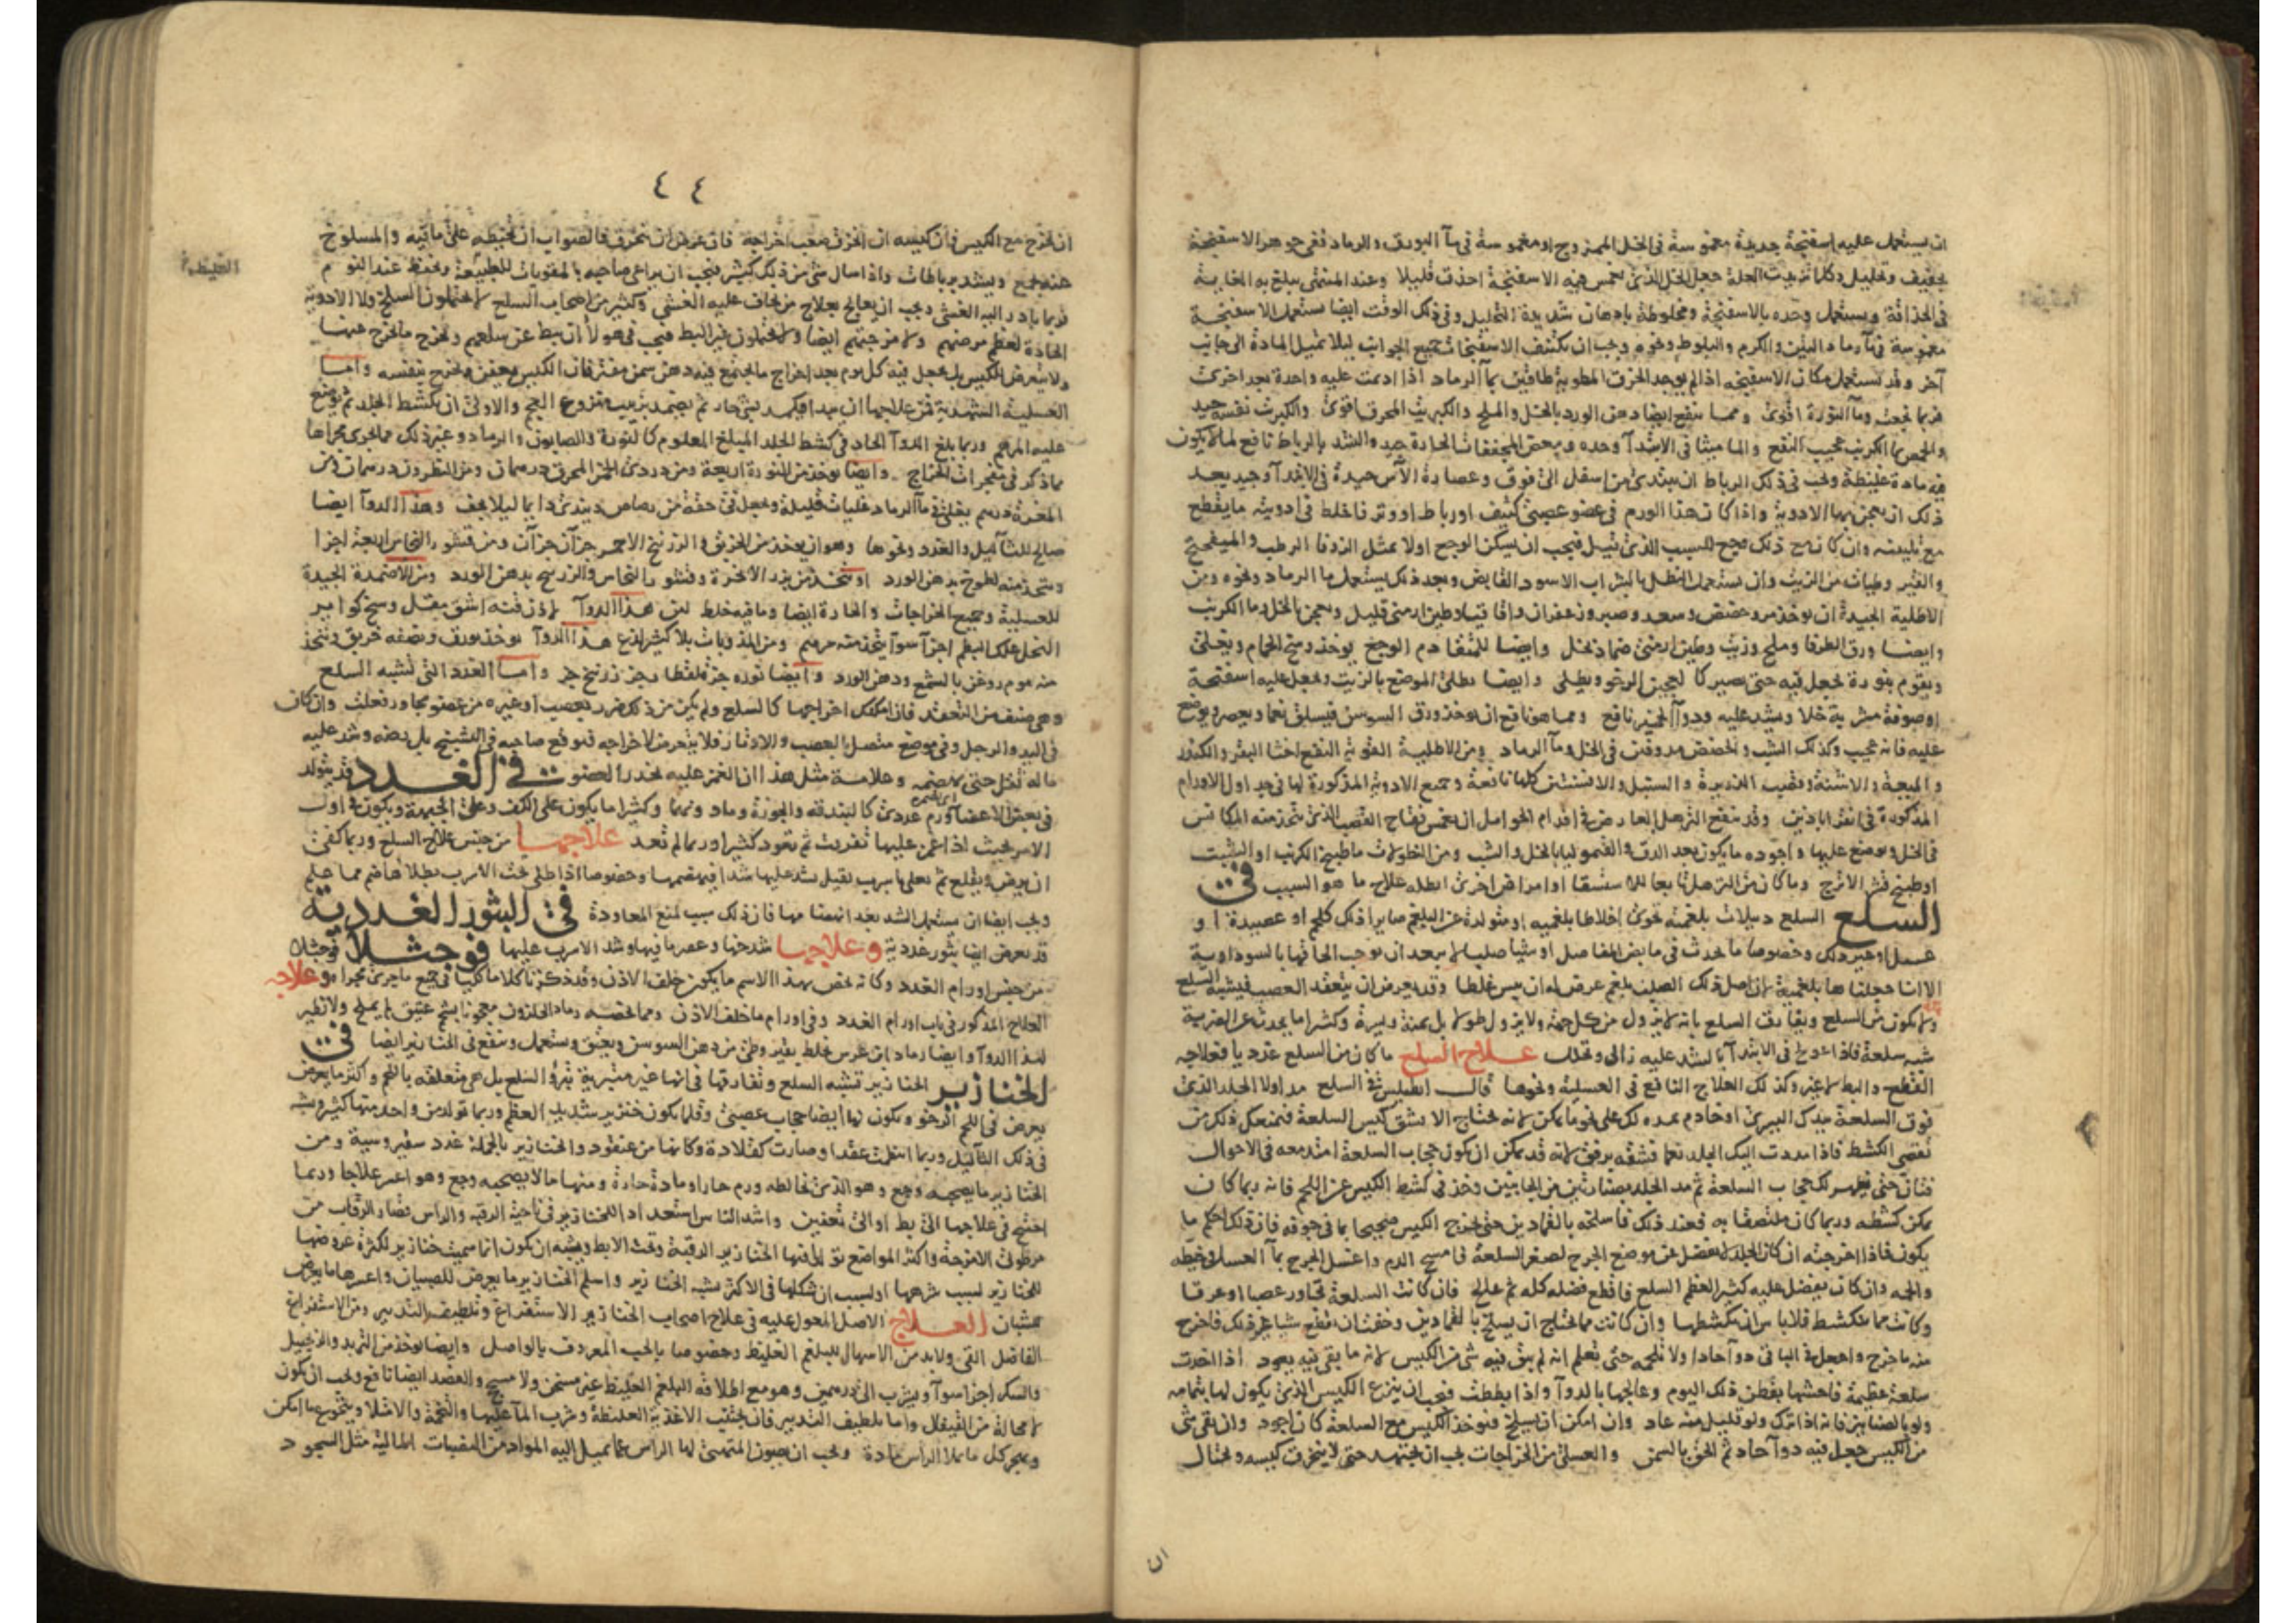 ان يستعمل عليه اسفنجة جديدة مغموسة في الخل الممزوج او مغموسة في مآ البورق والرماد ففي جوهر الاسفنجة
تجفيف وتحليل وكلما تزيدت العلة جعل الخل الذي يغمس فيه الاسفنجة احذق قليلا وعند المنتهى يبلغ به الغاية
في الحذاقة ويستعمل وحده بالاسفنجة ومخلوطة بادهان شديدة التحليل وفي ذلك الوقت ايضا تستعمل الاسفنجة
مغموسة في مآ رماد التين والكرم والبلوط ونحوه ويجب ان تكتنف الاسفنجات جميع الجوانب ليلا تميل المادة الى جانب
آخر وقد يستعمل مكان الاسفنجه اذا لم يوجد الخرق المطوية طاقين بمآ الرماد اذا ادمت عليه واحدة بعد اخرى
فربما نجعت ومآ النورة اقوى ومما ينفع ايضا دهن الورد بالخل والملح والكبريت المحرق اقوى والكبريت نفسه جيد
عجيب النفع والماميثا في الابتدآ وحده وبعض المجففات الحادة جيد والشد بالرباط نافع لما لا يكون
فيه مادة غليظة ويجب في ذلك الرباط ان يبتدئ من اسفل الى فوق وعصارة الآس جيدة في الابتدآ وجيد بعد
ذلك ان يعجن بها الادوية واذا كان هذا الورم في عضو عصبي كثيف او رباط او وتر فاخلط في ادويته ما يقطع
مع تليينه وان كان مع ذلك وجع للسبب الذي قيل فيجب ان يسكن الوجع اولا بمثل الزوفا الرطب والميفختج
والقير وطيات من الزيت وان يستعمل النطل بالشراب الاسود القابض وبعد ذلك يستعمل ما الرماد ونحوه ومن
الاطلية الجيدة ان يوخذ مر وحضض وسعد وصبر وزعفران واقاقيا وطين ارمني قليل ويعجن بالخل وما الكرنب
وايضا ورق الطرفا وملح وزيت وطين ارمني ضماد بخل وايضا للمتقادم الوجع يوخذ رمح الحمام ويغلى
ويقوم بنورة تجعل فيه حتى يصير كالعجين الرخو ويطلى وايضا يطلى الموضع بالزيت ويجعل عليه اسفنجة
او صوفة مشربة خلا ويشد عليه ودوآ الخنازير نافع ومما هو نافع ان يوخذ ورق السوسن فيسلق نعما ويعصر ويوضع
عليه فانه عجيب وكذلك الشب والحضض مدوفين في الخل ومآ الرماد ومن الاطلية القوية النفع اخثا البقر والكندر
والميعة والاشنة وقصب الذريرة والسنبل والافسنتين كلها نافعة وجميع الادوية المذكورة لها في جداول الاورام
المذكورة في القراباذين وقد ينفع الترهل العارض في اقدام الحوامل ان يغمس فقاح القصب الذي تتخذ منه المكانس
في الخل ويوضع عليها واجوده ما يكون بعد الدق والقيموليا بالخل والشب ومن الخلولات ما طبيخ الكرنب او الشبت
او طبيخ قشر الاترج وما كان من الترهل تابعا للاستسقا او امراض اخرى ابطله علاج ما هو السبب في
السلع السلع دبيلات بلغمية تحوى اخلاطا بلغميه او متولدة عن البلغم صايرا ذلك كلحم او عصيدة او
عسل او غير ذلك وخصوصا ما يحدث في مابض المفاصل او شيا صلبا لا يبعد ان يوجب الحاقها بالسوداوية
الا انا جعلناها بلغمية لان اصل ذلك الصلب بلغم عرض له ان يبس غلظا وقد يعرض ان يتعقد العصب فيشبه السلع
ولا يكون من السلع ويفارق السلع بانه لا يزول من كل جهة ولا يزول طولا بل يمنة ويسرة وكثيرا ما يحدث عن الضربة
شبه سلعة فاذا عولج في الابتدآ بالشد عليه زال وتحلل علاج السلع ما كان من السلع غدديا فعلاجه
القطع والبط لا غير وكذلك العلاج النافع في العسلية ونحوها قال انطيلس في السلع مد اولا الجلد الذي
فوق السلعة بيدك اليسرى او خادم يمده لك على نحو ما يمكن لانه تحتاج الا تشق كيس السلعة فيمنعك ذلك من
تقصي الكشط فاذا مددت اليك الجلد نعما فشقه برفق لانه قد يمكن ان يكون حجاب السلعة امتد معه في الاحوال
فتان حتى يظهر لك حجاب السلعة ثم مد الجلد بصنارتين من الجانبين وخذ في كشط الكيس عن اللحم فانه ربما كان
يمكن كشطه وربما كان ملتصقا به فعند ذلك فاسلخه بالغمادين حتى يخرج الكيس صحيحا بما في جوفه فان ذلك احكم ما
يكون فاذا اخرجته ان كان الجلد لا يفضل عن موضع الجرح لصغر السلعة فامسح الدم واغسل الجرح بمآ العسل وخيطه
والحمه وان كان يفضل عليه كثيرا لعظم السلع فاقطع فضله كله ثم عالج فان كانت السلعة تجاور عصبا او عرقا
وكانت مما ينكشط فلا باس ان تكشطها وان كانت مما يحتاج ان يسلخ بالغمادين وخفت ان تقطع شيا غير ذلك فاخرج
منه ما خرج واجعل في الباقي دوآ حادا ولا تلحمه حتى تعلم انه لم يبق فيه شي من الكيس لانه ما بقي فيه يعود اذا اخذت
سلعة عظيمة فاحشها بقطن ذلك اليوم وعالجها بالدوآ واذا بططت فيجب ان ينزع الكيس الذي يكون لها بتمامه
ولو بالصنانير فانه اذا ترك ولو قليل منه عاد وان امكن ان يسلخ فيوخذ الكيس مع السلعة كان اجود وان بقي شي
من الكيس جعل فيه دوآ حاد ثم الحق بالسمن والعسلي من الخراجات يجب ان يجتهد حتى لا ينخرق كيسه ويحتال
ان
٤٤
ان يخرج مع الكيس فان كيسه ان انخرق صعب اخراجه فان عرض ان ينخرق فالصواب ان تخيطه على ما فيه والمسلوخ
عنه يجمع ويشد برباطات واذا سال شي من ذلك كثير فيجب ان يراعى صاحبه بالمقويات للطبيعة ويحفظ عند النوم
فربما بادر اليه الغشي ويجب ان يعالج بعلاج من يخاف عليه الغشي وكثير من اصحاب السلع لا يحتملون السلخ ولا الادوية
الحادة لعظم مرضهم ولا مزجتهم ايضا ولا يحتملون غير البط فيجب في هولا ان يبط عن سلعهم ويخرج ما يخرج عنها
ولا يتعرض للكيس بل يجعل فيه كل يوم بعد اخراج ما يجتمع فيه دهن سمن مفتر فان الكيس يعفن ويخرج بنفسه واما
العسلية الشهدية فمن علاجها ان يبدا فيكمد بشي حار ثم يضمد بزبيب منزوع العجم والاولى ان يكشط الجلد ثم يوضع
عليه المرهم وربما بلغ الدوآ الحاد في كشط الجلد المبلغ المعلوم كالنورة والصابون والرماد وغير ذلك مما يجرى مجراها
مما ذكر في مفجرات الخراج وايضا يوخذ من النورة اربعة ومن دردي الخمر المحرق درهمان ومن النطرون درهمان ومن
المغرة درهم يغلى في مآ الرماد غليات قليلة ويجعل في حقة من رصاص ويندى دايما ليلا يجف وهذا الدوآ ايضا
صالح للثآليل والغدد ونحوها وهو ان يوخذ من الخربق والزرنيخ الاحمر جزآن جزآن ومن قشور النحاس اربعة اجزا
ويتخذ منه لطوخ بدهن الورد او يتخذ من بزر الانجرة وقشور النحاس والزرنيخ بدهن الورد ومن الاضمدة الجيدة
للعسلية وجميع الخراجات والحادة ايضا وما فيه خلط لبن هذا الدوآ لاذن قنه اشق مقل وسخ كواير
النحل علك البطم اجزآ سوآ يتخذ منه مرهم ومن المذوبات بلا كثير لذع هذا الدوآ يوخذ بورق ونصفه خربق ويتخذ
منه موم روغن بالشمع ودهن الورد وايضا نوره جز قلقطا بجز زرنيخ جز واما الغدد التي تشبه السلع
وهي صنف من التعقد فان امكنك اخراجها كالسلع ولم يكن من ذلك ضرر بعصب او غيره من عضو مجاور فعلت وان كان
في اليد والرجل وفي موضع متصل بالعصب والاوتار فلا يتعرض لاخراجه فيوقع صاحبه في التشنج بل رضه وشد عليه
ما له ثقل حتى يهضمه وعلامة مثل هذا ان الغمز عليه يخدر العضو في الغدد قد يتولد
في بعض الاعضآ ورم غددي كالبندقه والجوزة وما دونهما وكثيرا ما يكون على الكف وعلى الجبهة ويكون في اول
الامر بحيث اذا غمز عليها تفرقت ثم تعود كثيرا وربما لم تعد علاجها من جنس علاج السلع وربما كفى
ان يرض ويفلغ ثم يعلى باسرب ثقيل يشد عليها شدا فيهضمها وخصوصا اذا طلى تحت الاسرب بطلا هاضم مما علم
ويجب ايضا ان يستعمل الشد بعد انهضامها فان ذلك سبب لمنع المعاودة في البثور الغددية
قد يعرض ايضا بثور غددية وعلاجها شدخها وعصر ما فيها وشد الاسرب عليها فوجثلا فوجثلا
من جنس اورام الغدد وكانه يخص بهذا الاسم ما يكون خلف الاذن وقد ذكرنا كلاما كليا في جميع ما يجرى مجراه وعلاجه
العلاج المذكور في باب اورام الغدد وفي اورام ما خلف الاذن ومما يخصه رماد الحلزون معجونا بشحم عتيق لم يملح ولا نظير
لهذا الدوآ وايضا رماد ابن عرس يخلط بقيروطي من دهن السوسن ويعتق ويستعمل وينفع في الخنازير ايضا في
الخنازير الخنازير تشبه السلع وتفارقها في انها غير متبرية تبرؤ السلع بل هي متعلقه باللحم واكثر ما يعرض
يعرض في اللحم الرخو ويكون لها ايضا حجاب عصبي وقلما يكون خنزير شديد العظم وربما تولد من واحد منها كثير وتشبه
في ذلك الثآليل وربما انتظمت عقدا وصارت كقلادة وكانها من عنقود والخنازير بالجملة غدد سقيروسية ومن
الخنازير ما يصحبه وجع وهو الذي يخالطه ورم حار او مادة حادة ومنها ما لا يصحبه وجع وهو اعسر علاجا وربما
احتيج في علاجها الى بط او الى تعفين واشد الناس استعدادا للخنازير في ناحية الرقبه والراس قصار الرقاب من
مرطوبي الامزجة واكثر المواضع تولدا فيها الخنازير الرقبة وتحت الابط ويشبه ان يكون انما سميت خنازير لكثرة عروضها
للخنازير لسبب شرهها او لسبب ان شكلها في الاكثر يشبه الخنازير واسلم الخنازير ما يعرض للصبيان واعسرها ما يعرض
للشبان العلاج الاصل المعول عليه في علاج اصحاب الخنازير الاستفراغ وتلطيف التدبير ومن الاستفراغ
الفاضل القي ولا بد من الاسهال للبلغم الغليظ وخصوصا بالحب المعروف بالواصل وايضا يوخذ من التربد والزنجبيل
والسكر اجزا سوآ ويشرب الى درهمين وهو مع اطلاقه البلغم الغليظ غير مسخن ولا مسحج والفصد ايضا نافع ويجب ان يكون
لا محالة من القيفال واما تلطيف التدبير فان يجتنب الاغذية الغليظة وشرب المآ عليها والتخمة والامتلا ويتجوع ما امكن
ويهجر كل ما يملا الراس مادة ويجب ان يصون المتهيئ لها الراس عما يميل اليه المواد من النصبات المالية مثل السجود